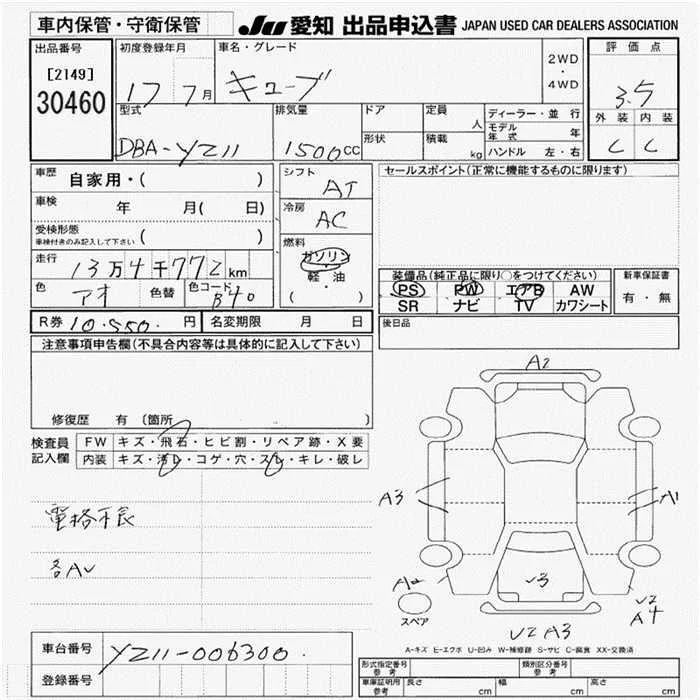 車内保管・守衛保管
JU 愛知 出品申込書 JAPAN USED CAR DEALERS ASSOCIATION
出品番号
[2149]
30460
初度登録年月
17 7月
車名・グレード
キューブ
2WD
・
4WD
評価点
3.5
外装 内装
C C
型式
DBA-YZ11
排気量
1500cc
ドア
形状
定員
人
積載
kg
ディーラー・並行
モデル年式 年
ハンドル 左・右
車歴 自家用・( )
車検 年 月( 日)
受検形態
車検付きのみ記入して下さい ( )
走行 13万4千772km
色 アオ 色替 色コード B40
シフト
AT
冷房
AC
燃料
ガソリン
軽・油
( )
セールスポイント(正常に機能するものに限ります)
装備品(純正品に限り○をつけてください)
PS PW エアB AW
SR ナビ TV カワシート
新車保証書
有・無
R券 10,550. 円 名変期限 月 日
後日品
注意事項申告欄(不具合内容等は具体的に記入して下さい)
修復歴 有 〔箇所 〕
検査員
記入欄
FW キズ・飛石・ヒビ割・リペア跡・X要
内装 キズ・汚レ・コゲ・穴・スレ・キレ・破レ
電格不良
各AU
A2
A3
A1
A2
スペア
U3
U2
A4
U2 A3
A-キズ E-エクボ U-凹み W-補修跡 S-サビ C-腐食 XX-交換済
車台番号 YZ11-006300.
登録番号
形式指定番号
参考
類別区分番号
参考
車庫証明用
参考
長さ cm 幅 cm 高さ cm